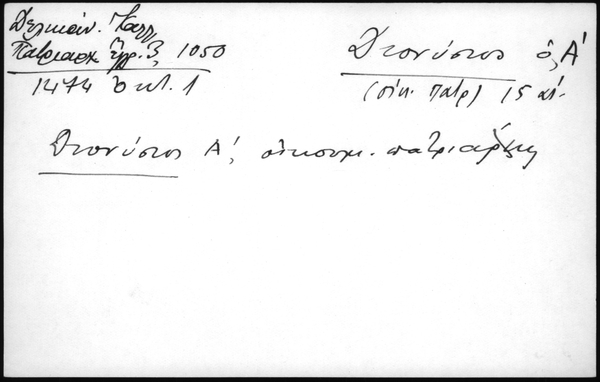 Δελικάν. Καλλ.
Πατριαρχ. ἔγγρ. 3, 1050
1474 Ὀκτ. 1
Διονύσιος ὁ Α΄
(οἰκ. πατρ) 15 αἰ.
Διονύσιος Α΄, οἰκουμ. πατριάρχης